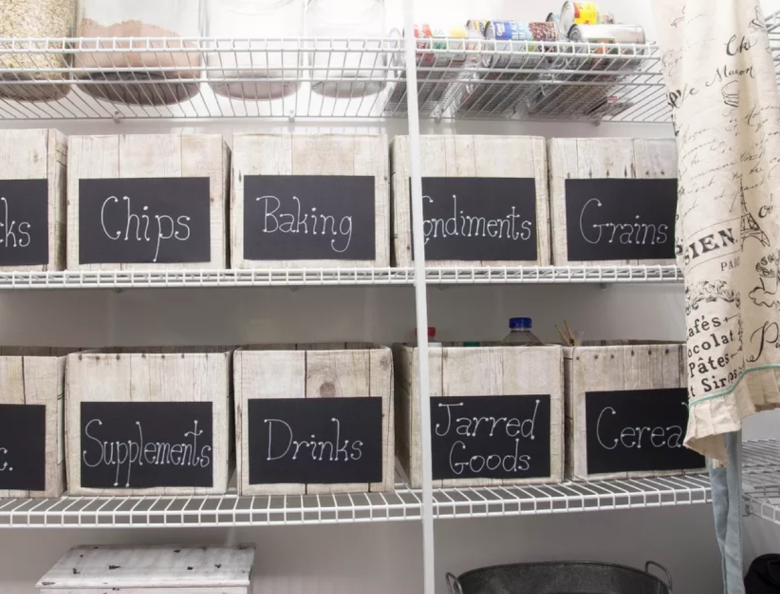 ks
Chips
Baking
ondiments
Grains
c.
Supplements
Drinks
Jarred
Goods
Cereal
Ch
IEN
PAR
afés
ocolat
Pâtes
t Siro